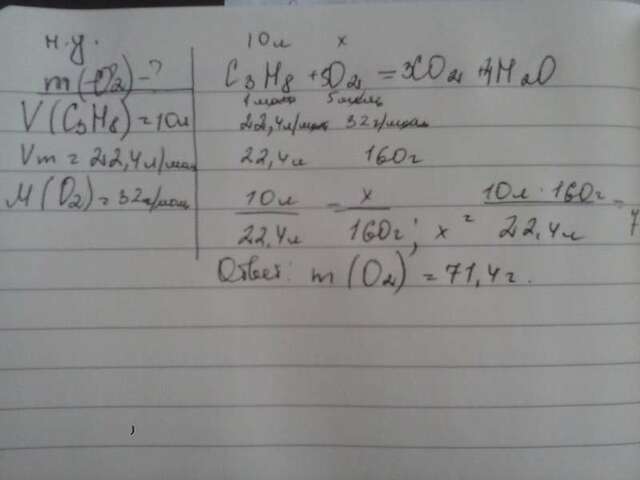 н.у.
m(O₂)-?
V(C₃H₈)=10л
Vm=22,4л/моль
M(O₂)=32г/моль
10л x
C₃H₈+5O₂=3CO₂+4H₂O
1моль 5моль
22,4л/моль 32г/моль
22,4л 160г
10л/22,4л = x/160г; x = 10л·160г/22,4л = 7
Ответ: m(O₂)=71,4г.